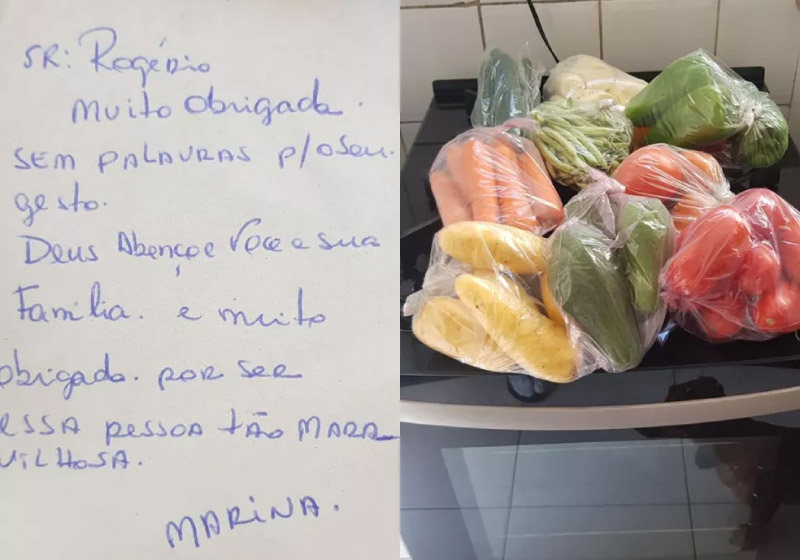 SR: Rogério
Muito obrigada.
SEM PALAVRAS p/o seu
gesto.
Deus Abençoe Voce e sua
Família. e muito
obrigada. por ser
ESSA pessoa tão MARA
VILHOSA.
MARINA.